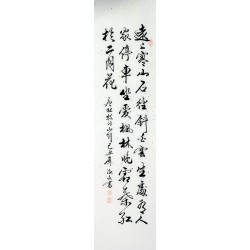 遠上寒山石徑斜白雲生處有人
家停車坐愛楓林晚霜葉紅
於二月花
唐杜牧山行己丑書